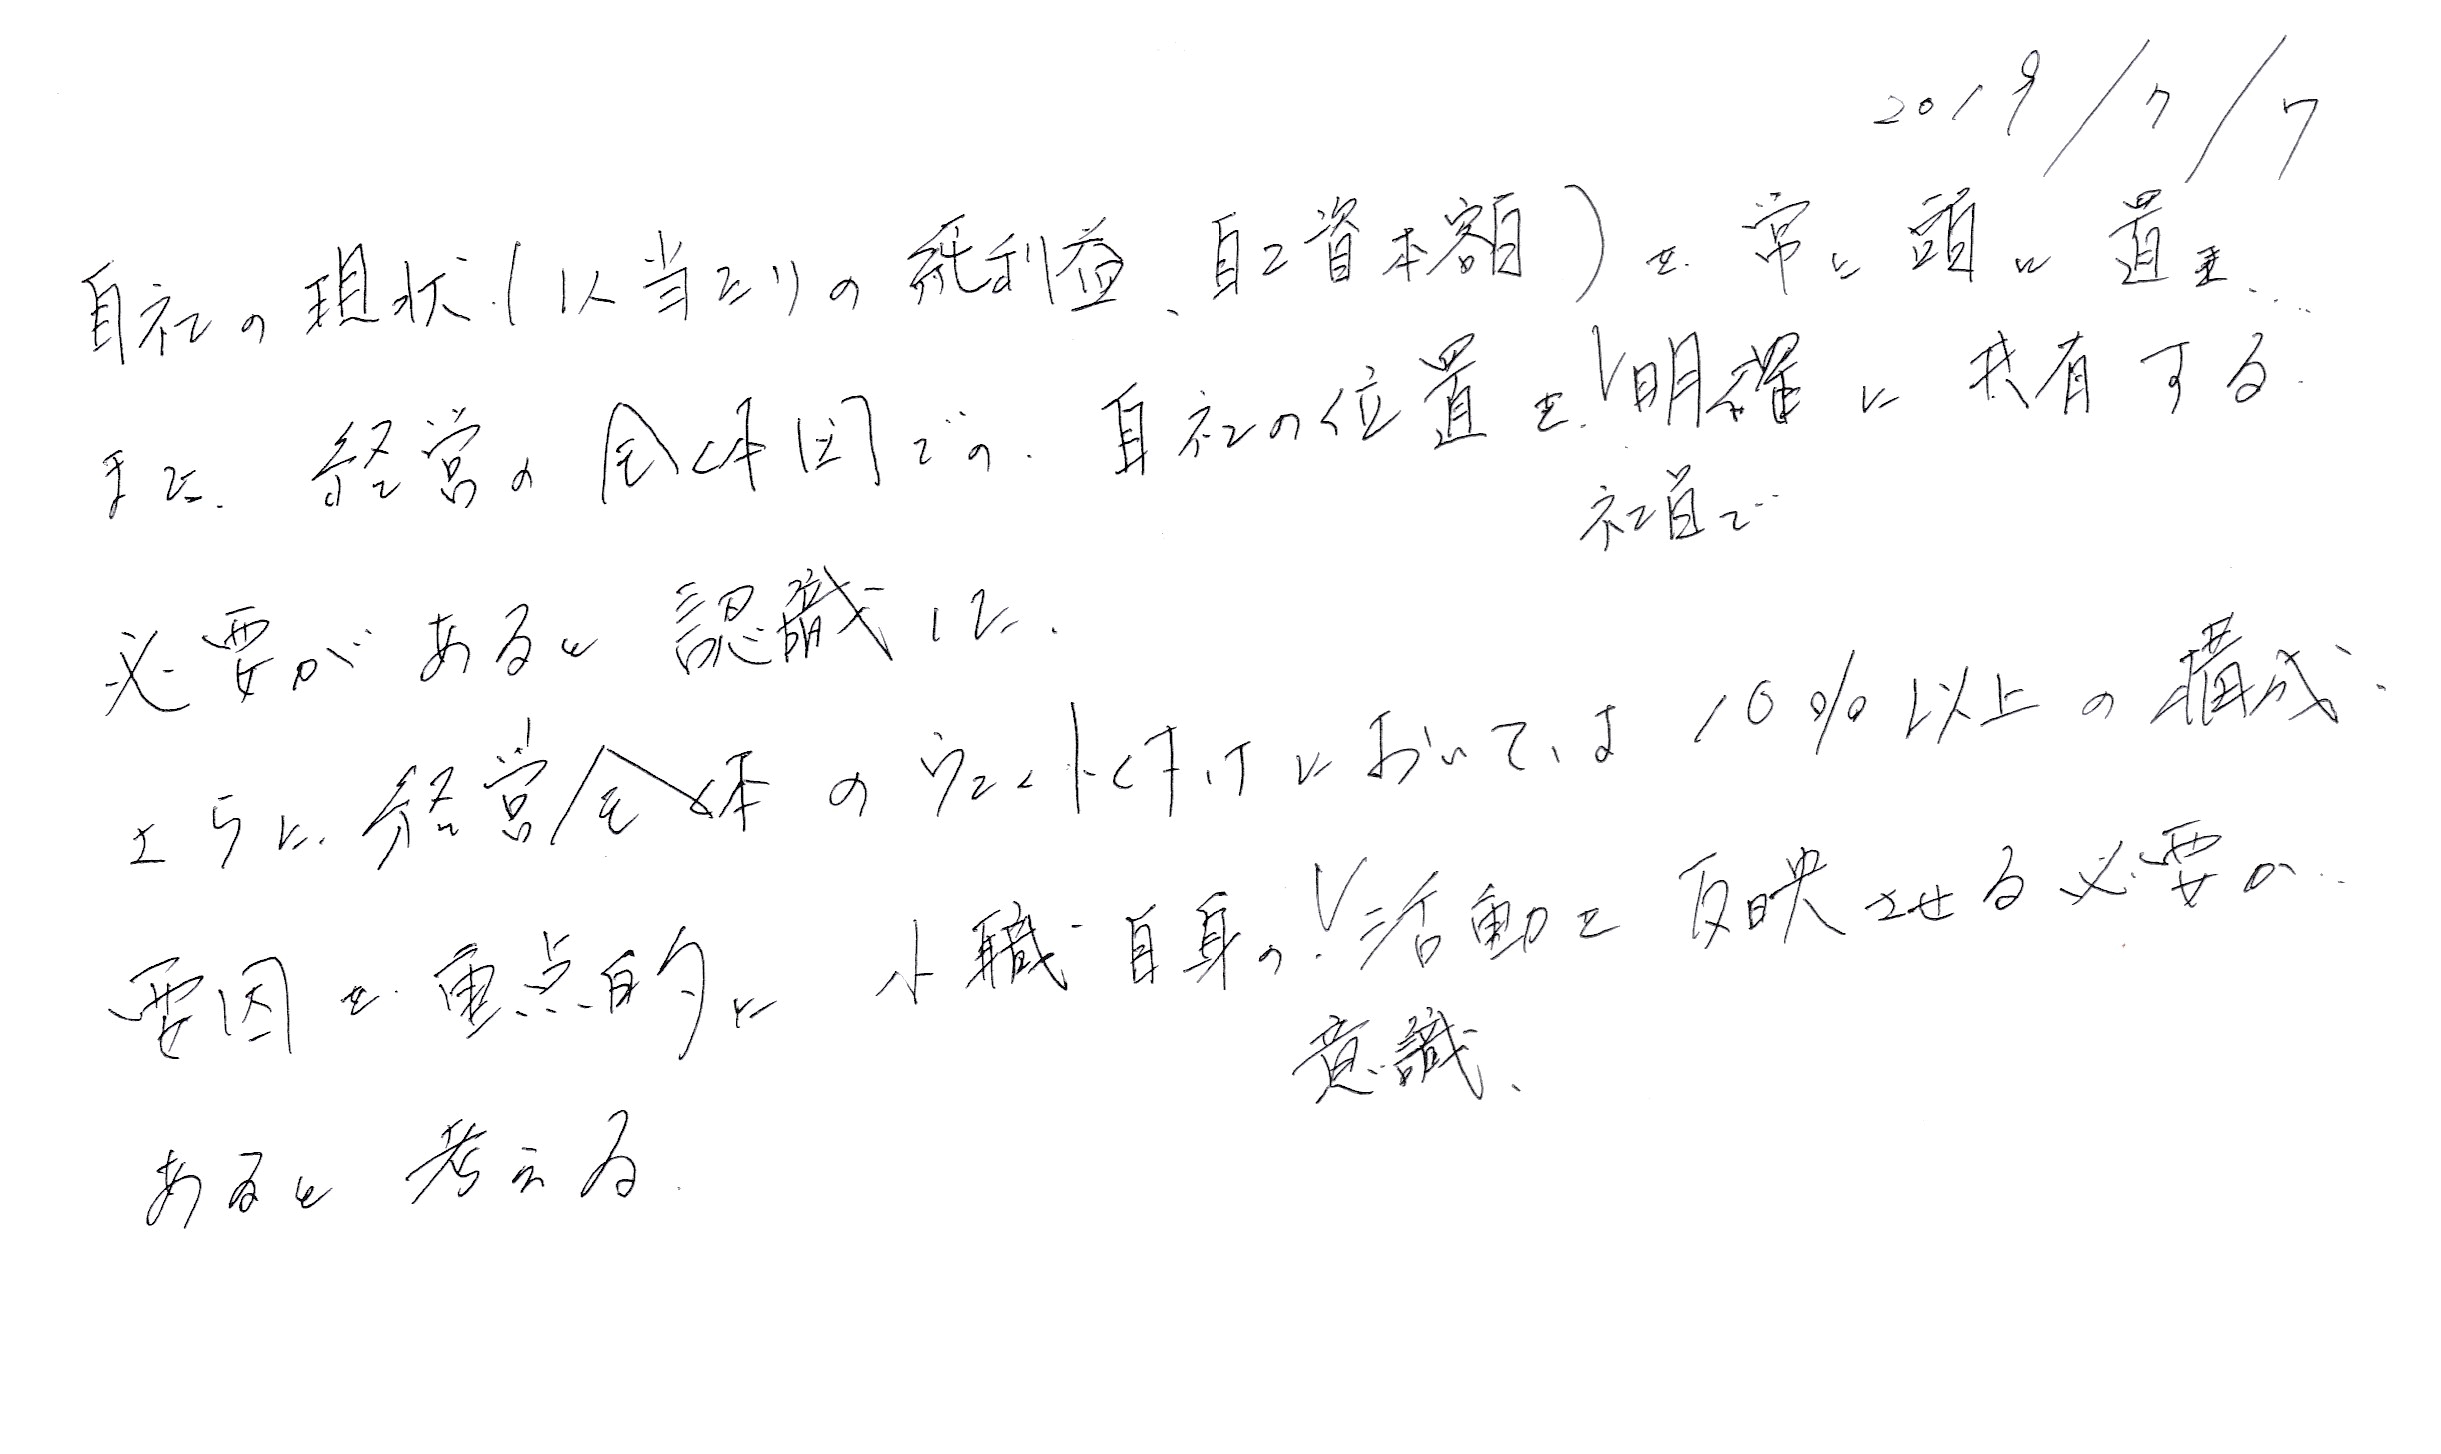 2019/7/7
自社の現状(1人当たりの純利益、自己資本額)を常に頭に置き
また、経営の全体図での自社の位置を明確に共有する
社員で
必要があると認識した。
さらに、経営全体のウエイト付けにおいては10%以上の構成
要因を重点的に小職自身の活動に反映させる必要が
意識、
あると考える。